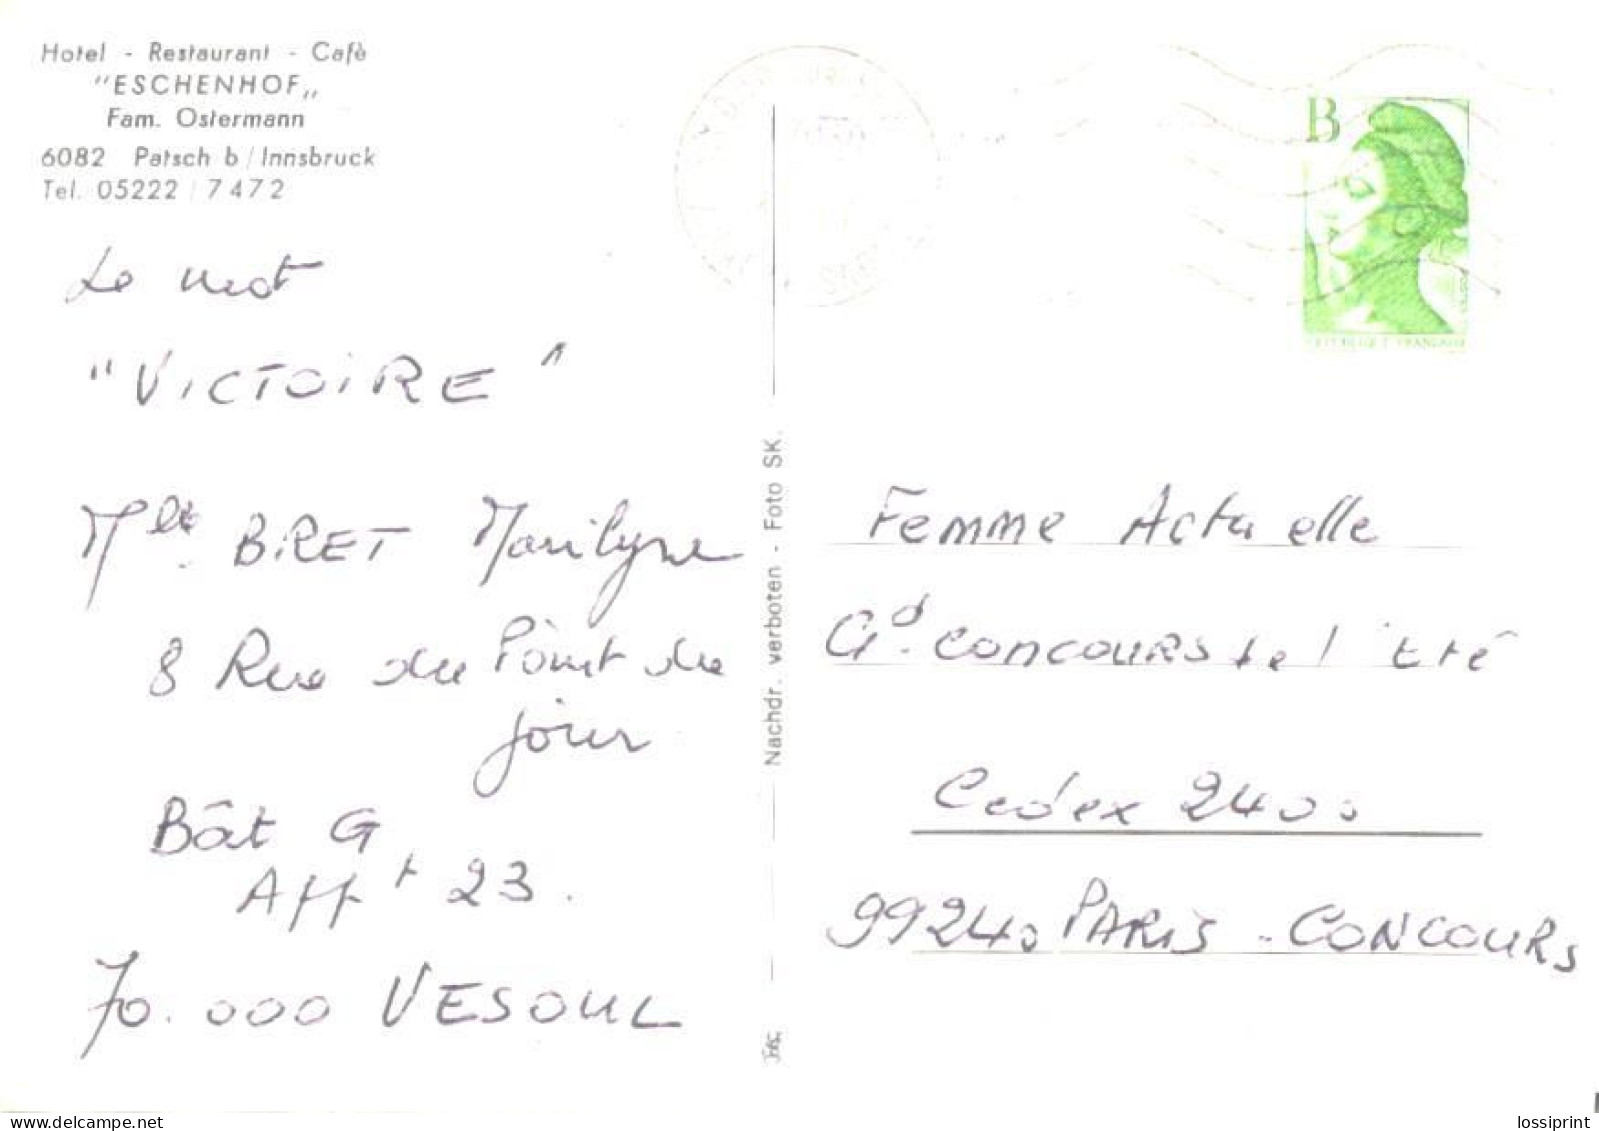 Hotel - Restaurant - Cafè
"ESCHENHOF„
Fam. Ostermann
6082 Patsch b/Innsbruck
Tel. 05222/7472
Le mot
"VICTOIRE"
Mlle. BRET Marilyne
8 Rue du Point du
jour
Bât G
APPt 23.
70.000 VESOUL
Nachdr. verboten - Foto SK.
B
REPUBLIQUE FRANÇAISE
Femme Actuelle
Gd. CONCOURS de l'été
Cedex 2400
99240 PARIS - CONCOURS
lossiprint